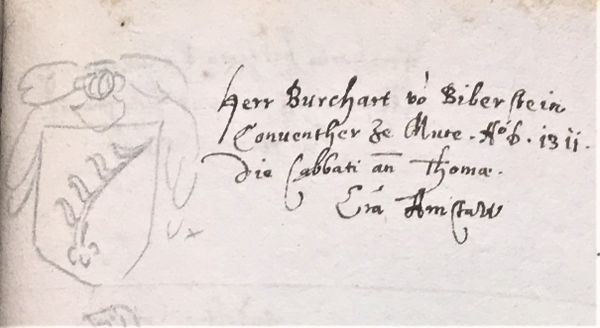 Herr Burchart vō Biberstein
Conventher ze Mure. Aō D. 1311.
die sabbati an̄ Thomæ.